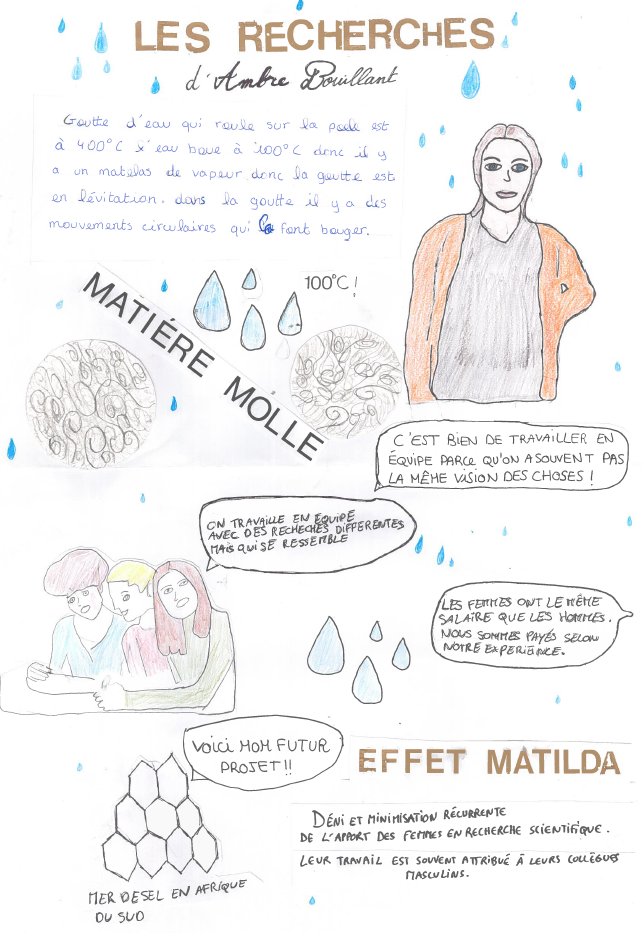 LES RECHERCHES
d'Ambre Bouillant
Goutte d'eau qui roule sur la poele est
à 400°C l'eau boue à 100°C donc il y
a un matelas de vapeur donc la goutte est
en lévitation. dans la goutte il y a des
mouvements circulaires qui la font bouger.
100°C !
MATIÉRE MOLLE
C'EST BIEN DE TRAVAILLER EN
ÉQUIPE PARCE QU'ON A SOUVENT PAS
LA MÊME VISION DES CHOSES !
ON TRAVAILLE EN ÉQUIPE
AVEC DES RECHECHES DIFFERENTES
MAIS QUI SE RESSEMBLE
LES FEMMES ONT LE MÊME
SALAIRE QUE LES HOMMES.
NOUS SOMMES PAYÉS SELON
NOTRE EXPERIENCE.
VOICI MON FUTUR
PROJET !!
EFFET MATILDA
DÉNI ET MINIMISATION RÉCURRENTE
DE L'APPORT DES FEMMES EN RECHERCHE SCIENTIFIQUE.
LEUR TRAVAIL EST SOUVENT ATTRIBUÉ À LEURS COLLÈGUES
MASCULINS.
MER DE SEL EN AFRIQUE
DU SUD